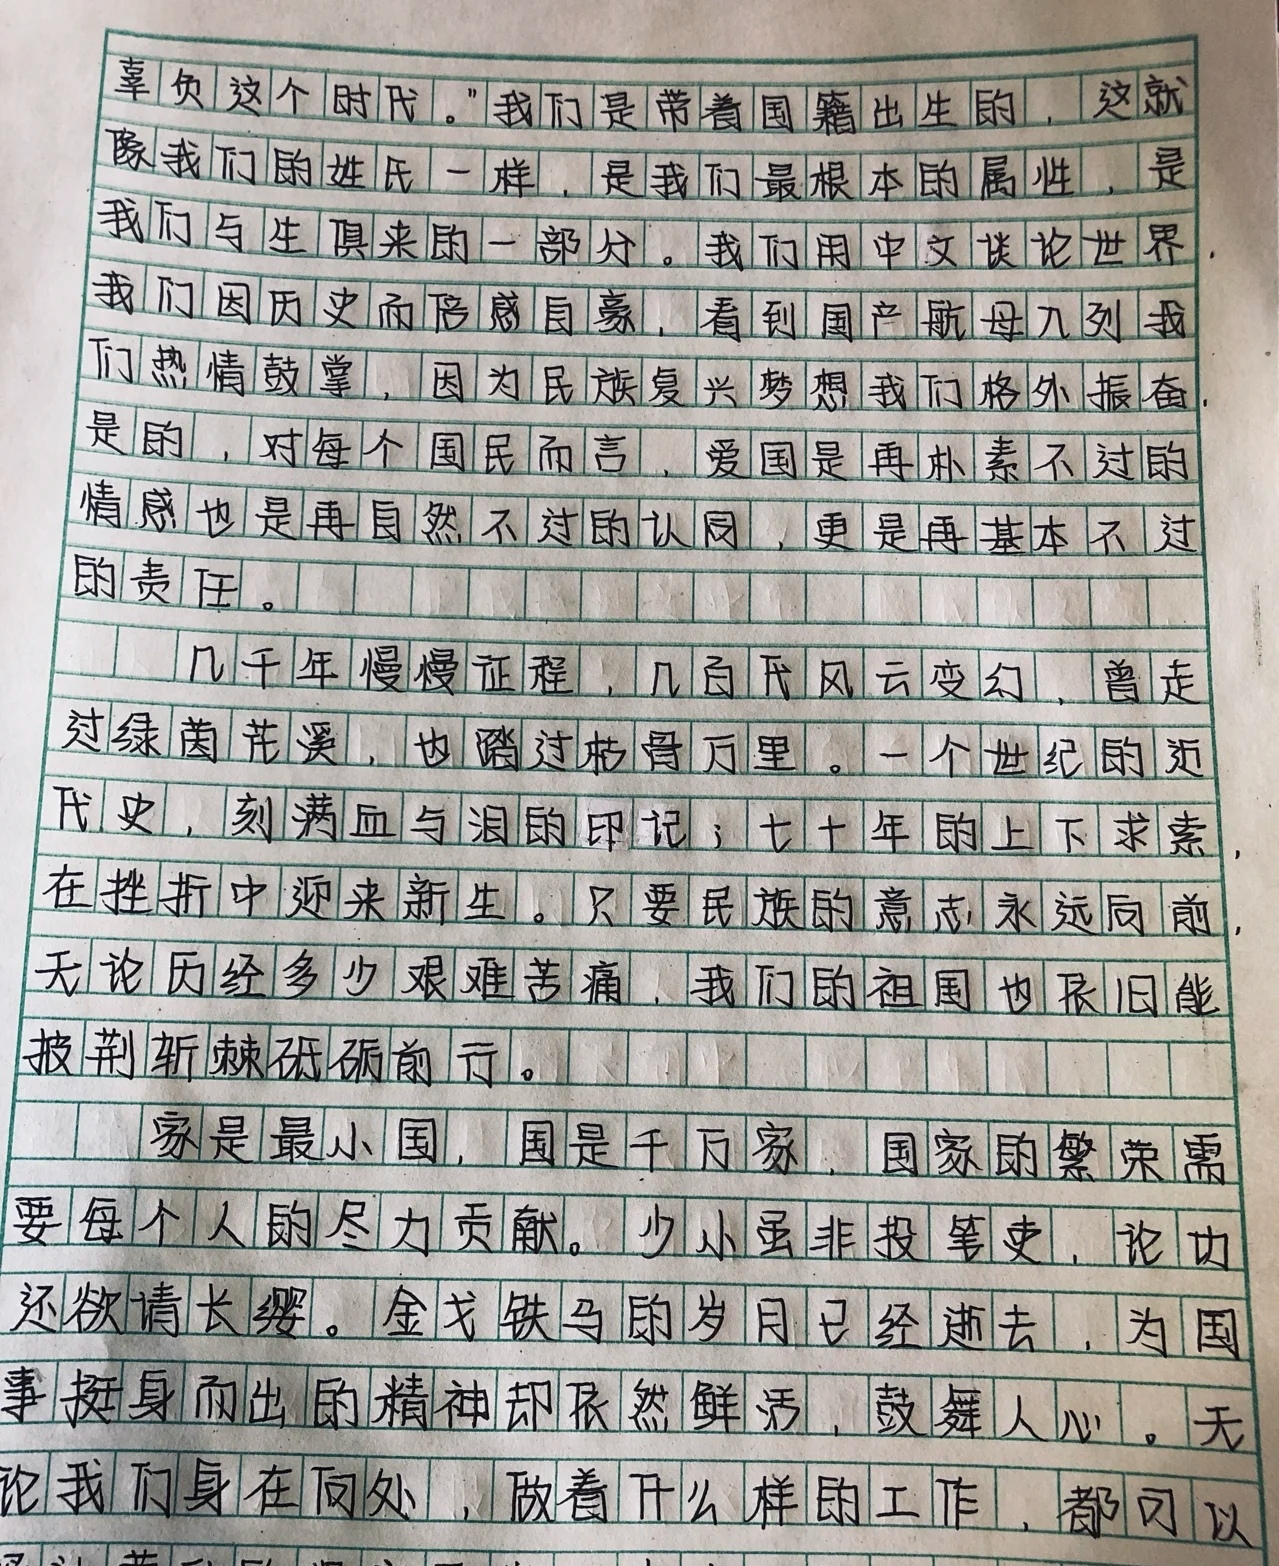 辜负这个时代。"我们是带着国籍出生的,这就
像我们的姓氏一样,是我们最根本的属性,是
我们与生俱来的一部分。我们用中文谈论世界.
我们因历史而倍感自豪,看到国产航母入列我
们热情鼓掌,因为民族复兴梦想我们格外振奋.
是的,对每个国民而言,爱国是再朴素不过的
情感也是再自然不过的认同,更是再基本不过
的责任。
几千年慢慢征程,几百代风云变幻,曾走
过绿茵花溪,也踏过枯骨万里。一个世纪的近
代史,刻满血与泪的印记;七十年的上下求索,
在挫折中迎来新生。只要民族的意志永远向前,
无论历经多少艰难苦痛,我们的祖国也依旧能
披荆斩棘砥砺前行。
家是最小国,国是千万家,国家的繁荣需
要每个人的尽力贡献。少小虽非投笔吏,论功
还欲请长缨。金戈铁马的岁月已经逝去,为国
事挺身而出的精神却依然鲜活,鼓舞人心。无
论我们身在何处,做着什么样的工作,都可以